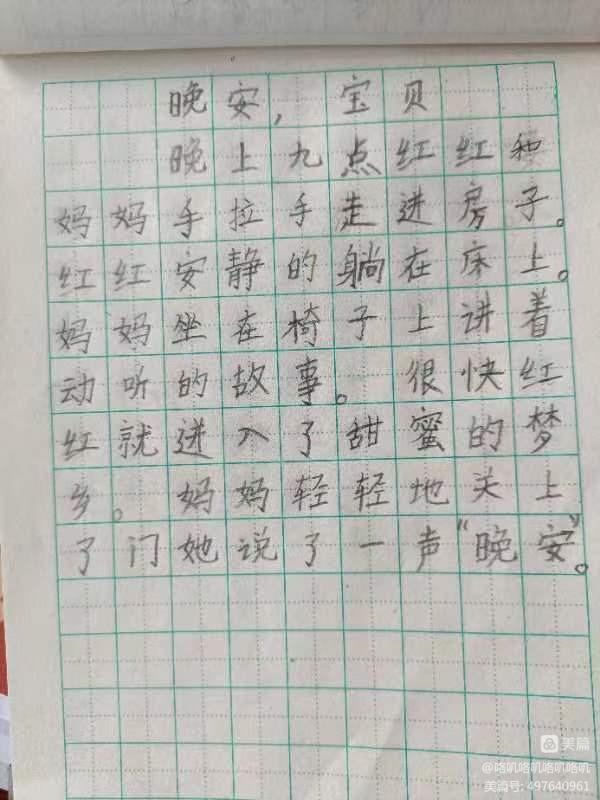 晚安，宝贝
晚上九点红红和
妈妈手拉手走进房子。
红红安静的躺在床上。
妈妈坐在椅子上讲着
动听的故事。很快红
红就进入了甜蜜的梦
乡。妈妈轻轻地关上
了门她说了一声“晚安”。
美篇
@咯叽咯叽咯叽咯叽
美篇号：497640961